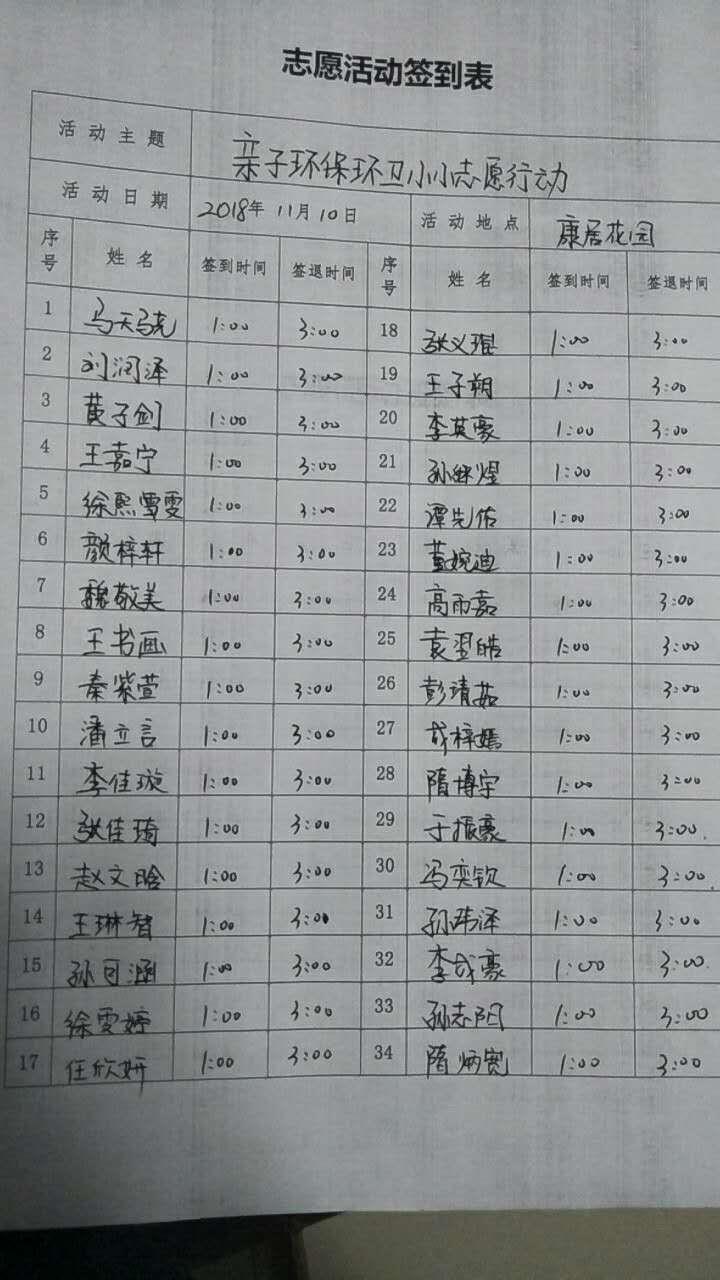 志愿活动签到表
活动主题 亲子环保环卫小小志愿行动
活动日期 2018年 11月 10日 活动地点 康居花园
序号 姓名 签到时间 签退时间 序号 姓名 签到时间 签退时间
1 马天骁 1:00 3:00 18 张义琨 1:00 3:00
2 刘润泽 1:00 3:00 19 王子朔 1:00 3:00
3 黄子剑 1:00 3:00 20 李英豪 1:00 3:00
4 王嘉宁 1:00 3:00 21 孙继煜 1:00 3:00
5 徐熙雯 1:00 3:00 22 谭先佑 1:00 3:00
6 颜梓轩 1:00 3:00 23 董婉迪 1:00 3:00
7 魏敬美 1:00 3:00 24 高雨嘉 1:00 3:00
8 王书画 1:00 3:00 25 袁翌皓 1:00 3:00
9 秦紫萱 1:00 3:00 26 彭靖茹 1:00 3:00
10 潘立言 1:00 3:00 27 成梓嫣 1:00 3:00
11 李佳璇 1:00 3:00 28 隋博宇 1:00 3:00
12 张佳琦 1:00 3:00 29 于振豪 1:00 3:00
13 赵文晗 1:00 3:00 30 冯奕钦 1:00 3:00
14 王琳智 1:00 3:00 31 孙玮泽 1:00 3:00
15 孙可涵 1:00 3:00 32 李成豪 1:00 3:00
16 徐雯婷 1:00 3:00 33 孙志阳 1:00 3:00
17 任欣妍 1:00 3:00 34 隋炳宽 1:00 3:00